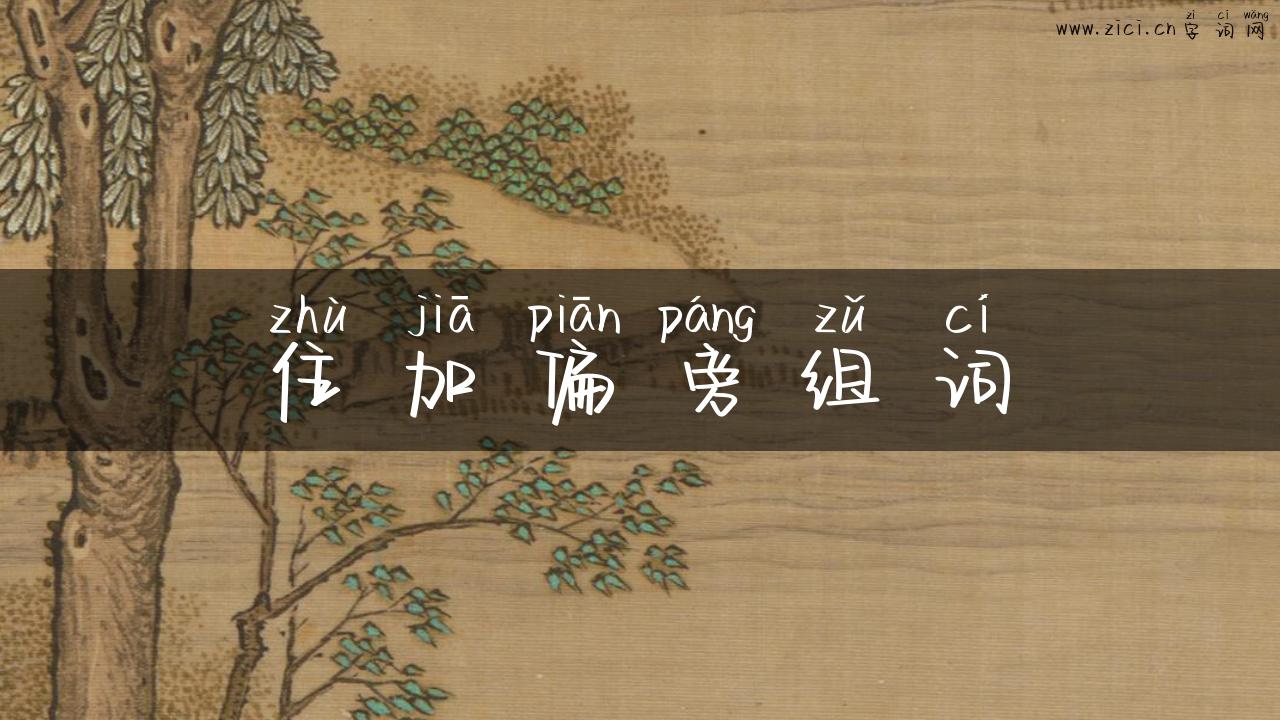 zì cí wǎng
www.zici.cn 字词网
zhù jiā piān páng zǔ cí
住加偏旁组词